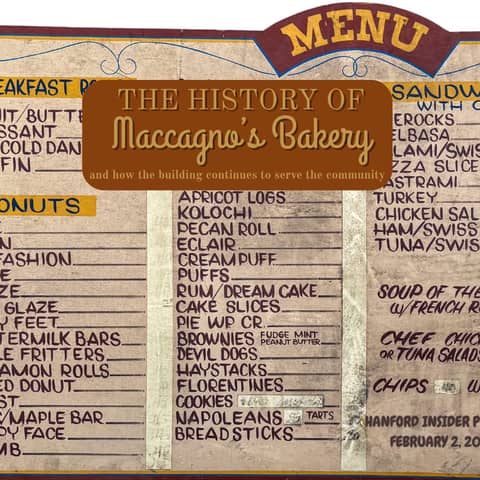 MENU
THE HISTORY OF
Maccagno's Bakery
and how the building continues to serve the community
EAKFAST
UIT/BUTTE
SSANT
COLD DAN
FFIN
ONUTS
E
N
FASHION
E
ZE
GLAZE
Y FEET
TERMILK BARS
LE FRITTERS
AMON ROLLS
ED DONUT
ST
S/MAPLE BAR
PY FACE
MB
APRICOT LOGS
KOLOCHI
PECAN ROLL
ECLAIR
CREAM PUFF
PUFFS
RUM/DREAM CAKE
CAKE SLICES
PIE WP CR
BROWNIES FUDGE MINT
PEANUT BUTTER
DEVIL DOGS
HAYSTACKS
FLORENTINES
COOKIES
NAPOLEANS TARTS
BREADSTICKS
SANDW
WITH C
EROCKS
ELBASA
LAMI/SWIS
ZZA SLICE
ASTRAMI
TURKEY
CHICKEN SAL
HAM/SWISS
TUNA/SWIS
SOUP OF THE
W/FRENCH R
CHEF CHIC
OR TUNA SALADS
CHIPS W
HANFORD INSIDER P
FEBRUARY 2, 20